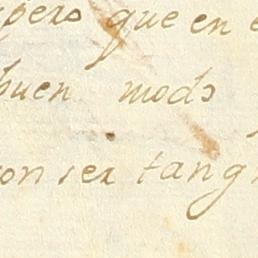 spero que en e
buen modo
con ser tang